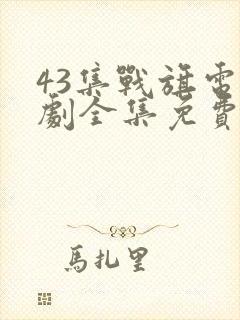 43集戰旗電
劇全集免費
馬扎里